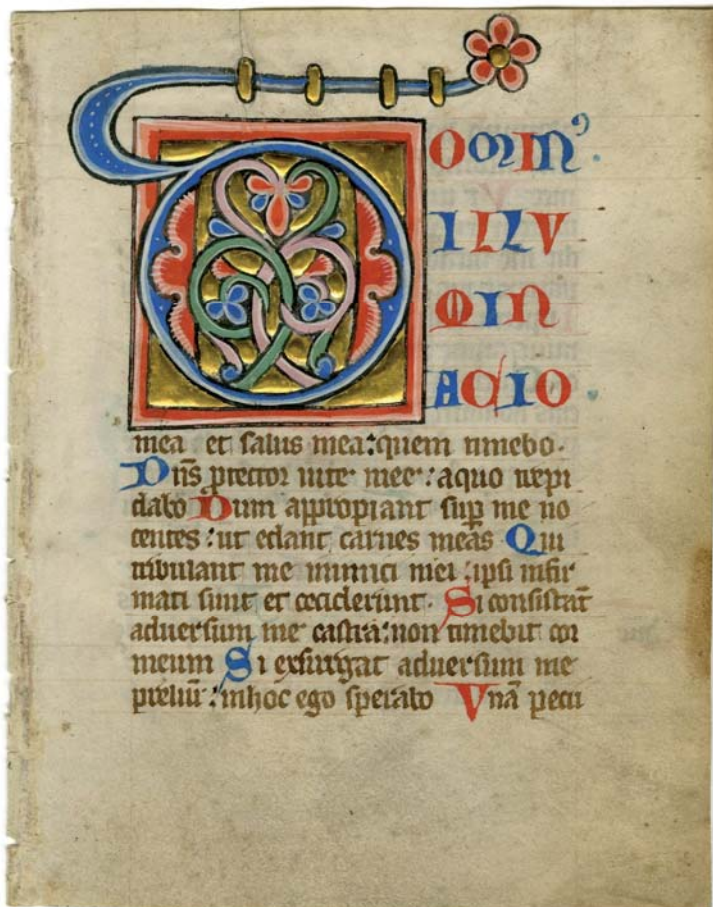 DOMIN'
ILLU
MIN
ACIO
mea et salus mea: quem timebo.
Dn̄s ꝓtector uite mee: a quo trepi
dabo Dum appropiant suꝑ me no
centes: ut edant carnes meas Qui
tribulant me inimici mei: ipsi infir
mati sunt et ceciderunt. Si consistāt
adversum me castra: non timebit cor
meum Si exsurgat adversum me
preliū: inhoc ego sperabo Vnā pecii